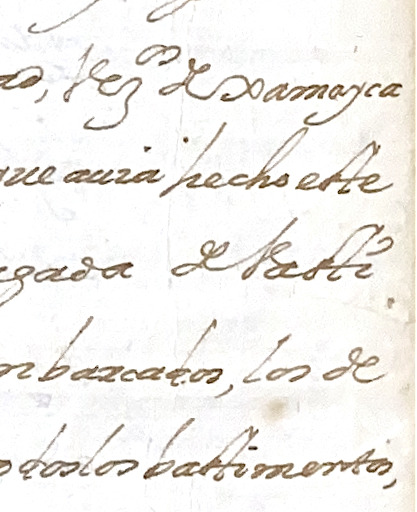 as, Vez.os de Xamayca
que auia hecho este
gada de Basti
mbarcados, los de
todos los bastimentos,